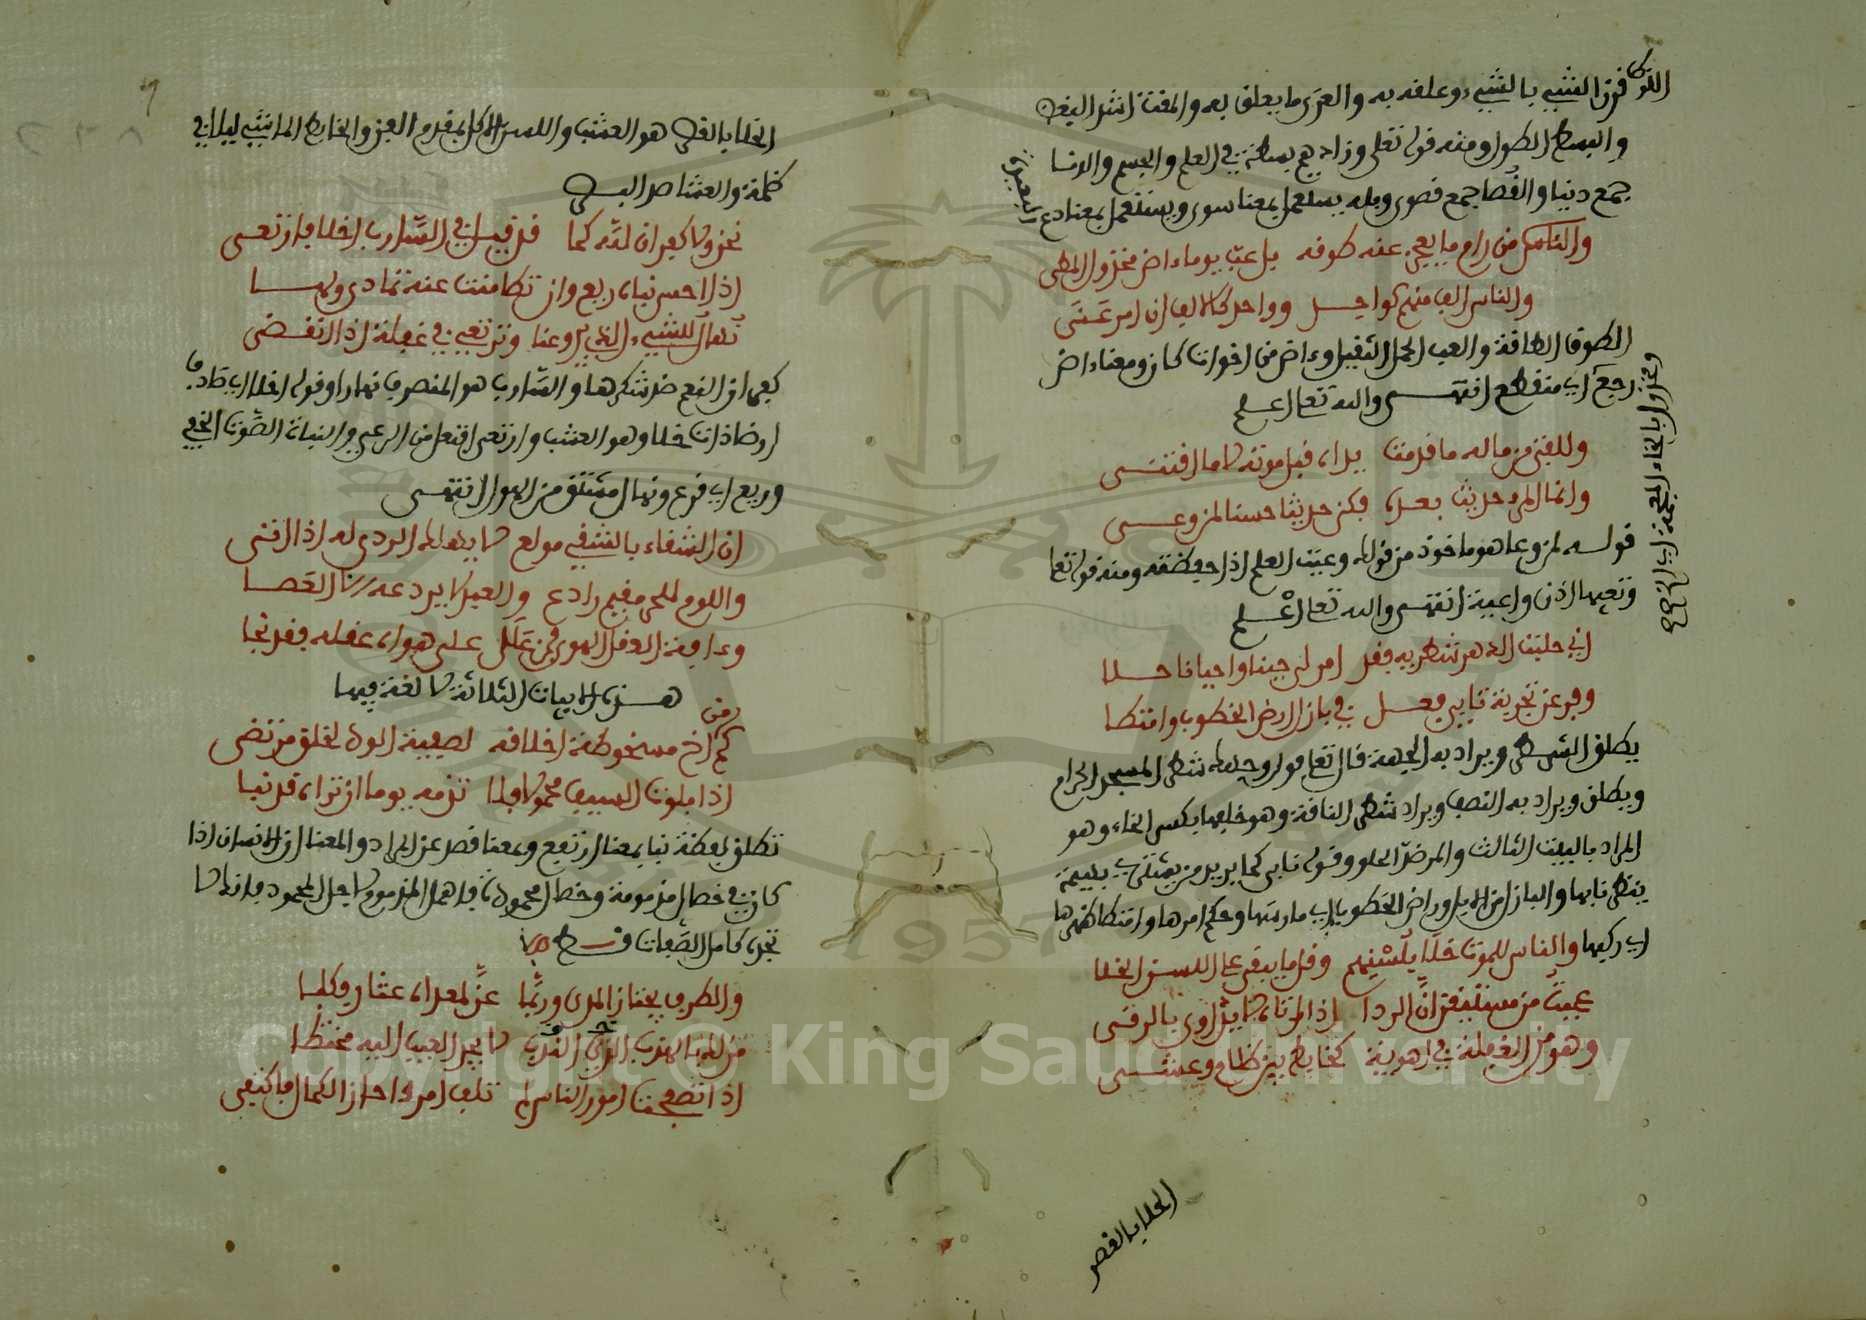 اللز كافرن الشيء بالشيء وعلقه به والعرى ما يعلق به والمقتنا انثر اليعن
والبسطة الطول ومنه قوله تعلى وزاده بسطة في العلم والجسم والدنا
جمع دنيا والقصا جمع قصوى وبله يستعمل بمعنا سوى ويستعمل بمعنا دع
والناس من رام ما يعجز عنه طوقه بل عبء يوما ءاض مخزول المطى
والناس الف منهم كواحد وواحد كالالف ان امر عنى
الطوق الطاقة والعبء الحمل الثقيل وءاض من اخوات كان ومعناه اض
رجع اي منقطع انتهى والله تعلى اعلم
وللفتى من ماله ما قدمت يداه قبل موته لا ما اقتنى
وانما المرء حديث بعده فكن حديثا حسنا لمن وعى
قوله لمن وعا هو ماخوذ من قوله وعيت العلم اذا حفظته ومنه قوله تعلى
وتعيها اذن واعية انتهى والله تعلى اعلم
اني حلبت الدهر شطريه فقد امر لي حينا واحيانا حلا
وفر عن تجربة نابي فقل في بازل راض الخطوب وامتطا
يطلق الشطر ويراد به الجهة قال تعلى فول وجهك شطر المسجد الحرام
ويطلق ويراد به النصف ويراد شطر الناقة وهو خلفها بكسر الخاء وهو
المراد بالبيت الثالث والمر ضد الحلو وقوله نابي كما يريد من يشتري بهيمة
ينظر نابها والبازل من الابل وراض الخطوب اي مارسها وحكم امرها وامتطا ظهرها
اي ركبها والناس للموت خلا يلسهم وقل ما يبقى على اللس الخلا
عجبت من مستيقن ان الردا اذا اتاه لا يداوى بالرقى
وهو من الغفلة في اهوية كخابط بين ظلام وعشى
الخلا بالقصر
الخلا بالقصر هو العشب واللس الاكل بمقدم الفم والخابط الماشي ليلا في
ظلمة والعشا ضعف البصر
نحن ولا كفران لله كما قد قيل في السارب اخلا فارتعى
اذا احس نباة ريع وان تطامنت عنه تمادى ولها
نهال للشيء الذي يروعنا ونرتعي في غفلة اذا انقضى
كفران النعم ضد شكرها والسارب هو المنصرف نهارا وقوله اخلا اي صادف
ارضا ذات خلا وهو العشب وارتعى افتعل من الرعي والنباة الصوت الخفي
وريع اي فزع ونهال مشتق من الهول انتهى
ان الشقاء بالشقي مولع لا يملك الرد له اذا اتى
واللوم للحر مقيم رادع والعبد لا يردعه الا العصا
وءافة العقل الهوى فمن علا على هواه عقله فقد نجا
هذه الابيات الثلاثة لا لغة فيها
كم من اخ مسخوطة اخلاقه اصفيته الود لخلق مرتضى
اذا بلوت السيف محمودا فلا تذمه يوما ان تراه قد نبا
تطلق لفظة نبا بمعنا ارتفع وبمعنا قصر عن المراد والمعنا ان الانسان اذا
كان في خصال مذمومة وخصال محمودة فاهمل المذموم لاجل المحمود فانك لا
تجد كامل الصفات قط
والطرف يجتاز المدى وربما عن لمعداه عثار فكبا
من لك بالمهذب الندب الذي لا يجد العيب اليه مختطا
اذا تصفحت امور الناس لم تلف امرءا حاز الكمال فاكتفى